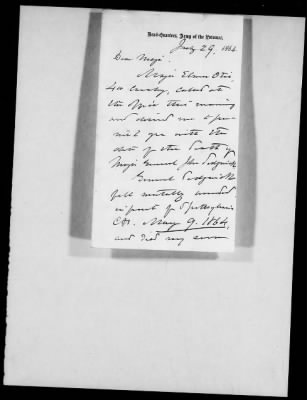 Head-Quarters, Army of the Potomac,
July 29, 1864
Dear Major:
Major Elmer Otis,
4th Cavalry, called at
the office this morning
and desired me to fur-
nish you with the
date of the death of
Major General John Sedgwick
General Sedgwick
fell mortally wounded
in front of Spottsylvania
C.H. May 9, 1864,
and died very soon